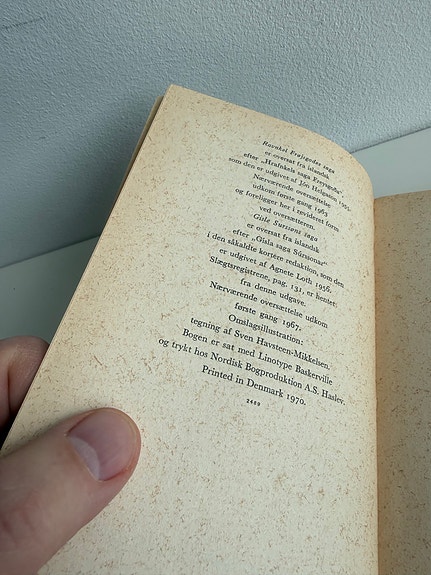 Ravnkel Frøjsgodes saga
er oversat fra islandsk
efter „Hrafnkels saga Freysgoða“
som den er udgivet af Jón Helgason 1955.
Nærværende oversættelse
udkom første gang 1963
og foreligger her i revideret form
ved oversætteren.
Gisle Surssøns saga
er oversat fra islandsk
efter „Gisla saga Súrssonar“
i den såkaldte kortere redaktion, som den
er udgivet af Agnete Loth 1956,
Slægtsregistrene, pag. 131, er hentet
fra denne udgave.
Nærværende oversættelse udkom
første gang 1967.
Omslagsillustration:
tegning af Sven Havsteen-Mikkelsen.
Bogen er sat med Linotype Baskerville
og trykt hos Nordisk Bogproduktion A.S. Haslev.
Printed in Denmark 1970.
2489